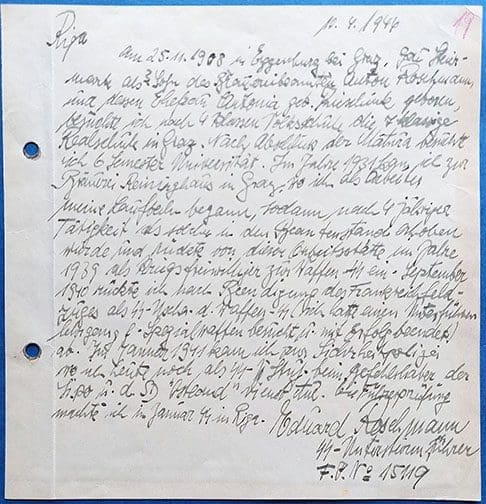 19
Riga
4. 1946
am 25.11.1908 in Eggenberg bei Graz, Gau Steier-
mark als 2. Sohn des Brauereibeamten Anton Roschmann,
und deren Ehefrau Antonia geb. geboren,
besuchte ich nach 4 Klassen Volksschule die 7 klassige
Realschule in Graz. Nach Abschluss der Matura besuchte
ich 6 Semester Universität. Im Jahre 1931 zog ich zur
Brauerei Reininghaus in Graz, wo ich als Arbeiter
meine Laufbahn begann, sodann nach 4 jähriger
Tätigkeit als solcher in den Beamtenstand erhoben
wurde und rückte von dieser Arbeitsstätte im Jahre
1939 als Kriegsfreiwilliger zur Waffen-SS ein. September
1940 rückte ich nach Beendigung des Frankreichfeld-
zuges als SS-Uscha. d. Waffen-SS (ich hatte einen Unterführer
lehrgang f. Spezialwaffen besucht u. mit Erfolg beendet)
ab. Im Jänner 1941 kam ich zur Sicherheitspolizei
wo ich heute noch als SS- beim Befehlshaber der
Sipo u. d. SD "Ostland" Dienst tue. Die Führerprüfung
machte ich im Januar in Riga.
Eduard Roschmann
SS-Untersturmführer
F.P. No 15119